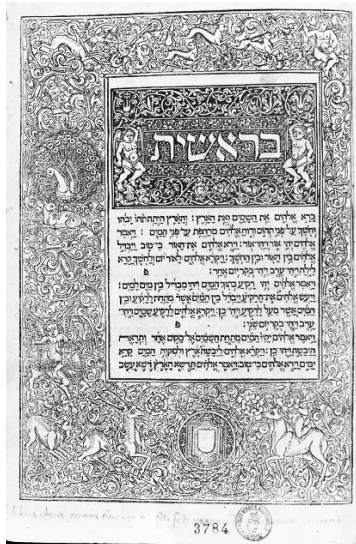 בראשית
ברא אלהים את השמים ואת הארץ: והארץ היתה תהו ובהו
וחשך על פני תהום ורוח אלהים מרחפת על פני המים: ויאמר
אלהים יהי אור ויהי אור: וירא אלהים את האור כי טוב ויבדל
אלהים בין האור ובין החשך: ויקרא אלהים לאור יום ולחשך קרא
לילה ויהי ערב ויהי בקר יום אחד: פ
ויאמר אלהים יהי רקיע בתוך המים ויהי מבדיל בין מים למים:
ויעש אלהים את הרקיע ויבדל בין המים אשר מתחת לרקיע ובין
המים אשר מעל לרקיע ויהי כן: ויקרא אלהים לרקיע שמים ויהי
ערב ויהי בקר יום שני: פ
ויאמר אלהים יקוו המים מתחת השמים אל מקום אחד ותראה
היבשה ויהי כן: ויקרא אלהים ליבשה ארץ ולמקוה המים קרא
ימים וירא אלהים כי טוב: ויאמר אלהים תדשא הארץ דשא עשב
3784